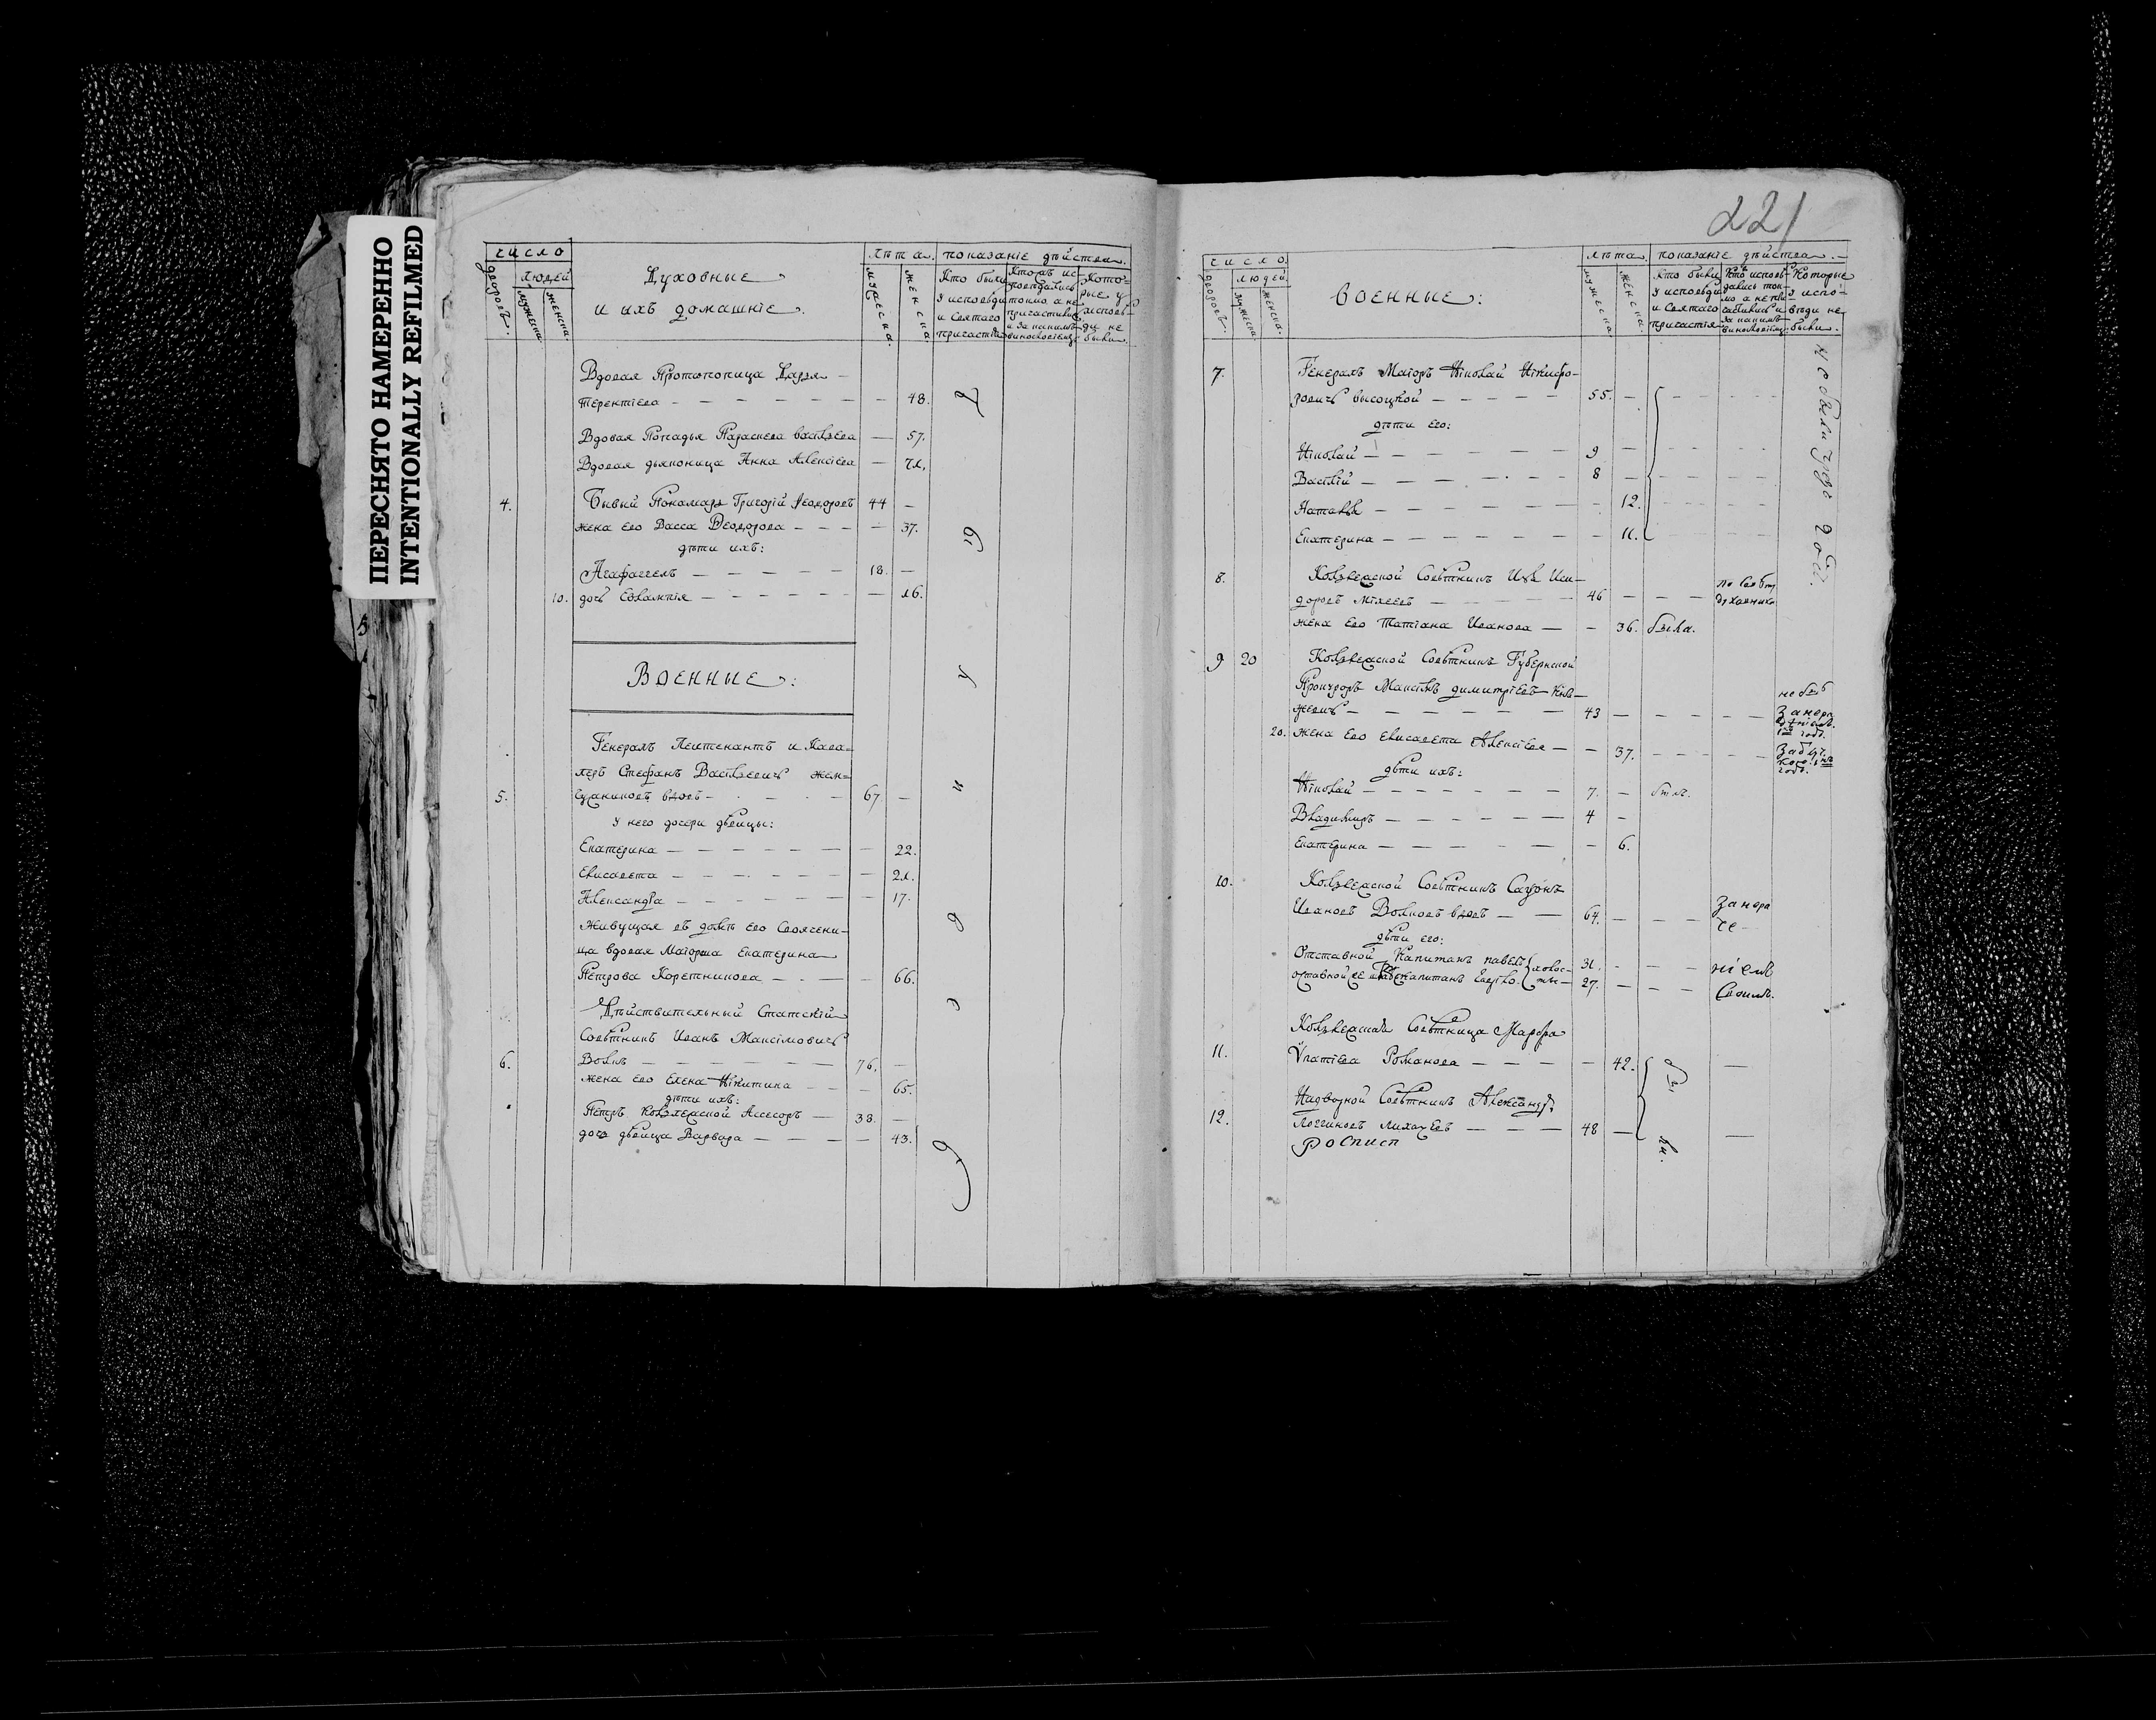 ПЕРЕСНЯТО НАМЕРЕННО
INTENTIONALLY REFILMED
5
число
дворовъ.
людей
мужеска.
женска.
Духовные
и ихъ домашніе.
лѣта.
мужеска.
женска.
показаніе дѣйства.
Кто были
у исповѣди
и Святаго
причастія
исповѣдались
токмо а не
причастились
и за какимъ
винословіемъ
Кото-
рые у
исповѣ-
ди не
были.
Вдовая Протопопица Дарья —
Терентіева — 48.
Вдовая Попадья Параскева Васильева — 57.
Вдовая дьяконица Анна Алексіева — 71.
4. Бывый Пономарь Григорій Ѳеодоровъ 44 —
жена его Васса Ѳеодорова — 37.
дѣти ихъ:
Агафаггелъ — 18. —
10. дочь Евлампія — 16.
ВОЕННЫЕ:
Генералъ Лейтенантъ и Кава-
леръ Стефанъ Васильевичь
5. вдовъ — 67 —
у него дочери дѣвицы:
Екатерина — 22.
Елисавета — 21.
Александра — 17.
Живущая въ домѣ его Своячени-
ца вдовая Маіорша Екатерина
Петрова Коретникова — 66.
Дѣйствительный Статскій
Совѣтникъ Иванъ Максимовичь
6. Волкъ — 76. —
жена его Елена Никитина — 65.
дѣти ихъ:
Петръ Коллежской Ассесоръ — 38. —
дочь дѣвица Варвара — 43.
221
число
дворовъ.
людей
мужеска.
женска.
ВОЕННЫЕ:
лѣта.
мужеска.
женска.
показаніе дѣйства.
Кто были
у исповѣди
и Святаго
причастія
Кто исповѣ-
дались ток-
мо а не при-
частились и
за какимъ
винословіемъ
Которые
у испо-
вѣди не
были.
7. Генералъ Маіоръ Николай Никифо-
ровичь Высоцкой — 55. —
дѣти его:
Николай — 9 —
Василій — 8 —
Наталья — 12.
Екатерина — 11.
не были
8. Коллежской Совѣтникъ Иси-
доровъ Михеевъ — 46 —
по совѣту
духовника
жена его Татіана Иванова — 36. была.
9 20 Коллежской Совѣтникъ Губернской
Прокуроръ Максимъ Димитріевъ
43 —
не былъ
20. жена его Елисавета Алексіева — 37.
дѣти ихъ:
Николай — 7. — былъ.
Владимиръ — 4 —
Екатерина — 6.
10. Коллежской Совѣтникъ
Ивановъ Волковъ вдовъ — 64. —
дѣти его:
Отставной Капитанъ Павелъ 31. —
27. —
Коллежская Совѣтница Марфа
11. Ипатіева Романова — 42. —
Надворной Совѣтникъ Александръ
12. Логгиновъ Лихачевъ — 48 —
были.
Роспись